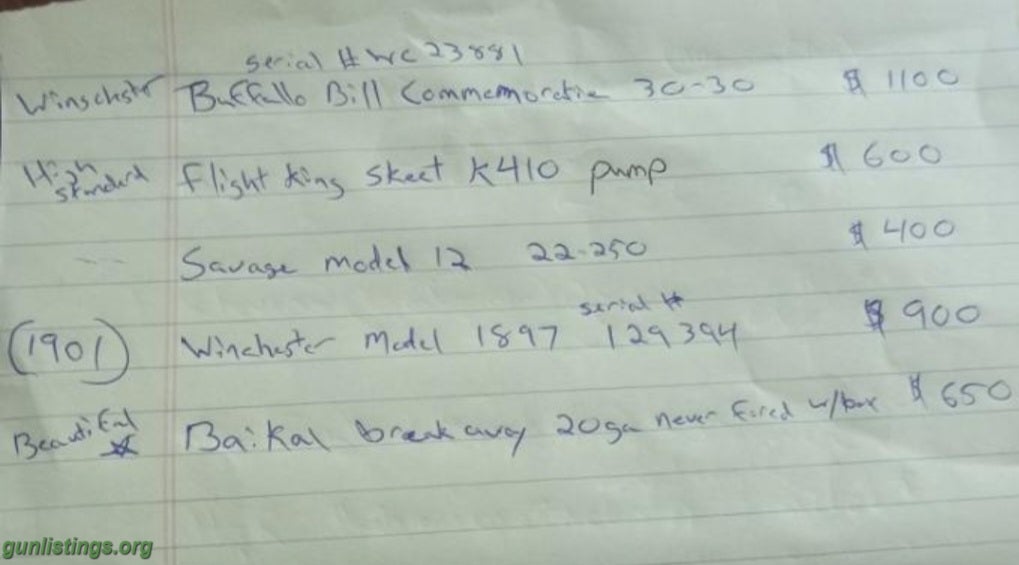 serial # WC 23881
Winschster Buffallo Bill Commemorative 30-30 $ 1100
High Standard Flight King Skeet K410 pump $ 600
Savage model 12 22-250 $ 400
serial #
(1901) Winchester Model 1897 129394 $ 900
Beautiful Baikal break away 20ga never fired w/box $ 650
gunlistings.org